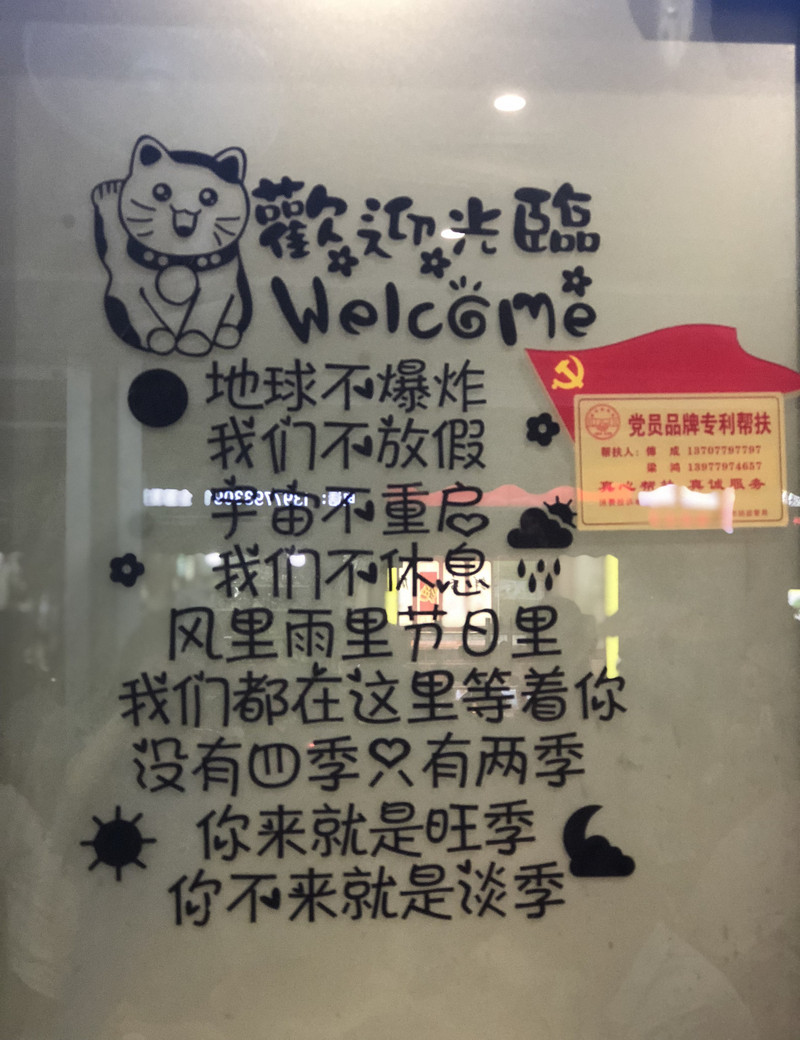 歡迎光臨
Welcome
地球不爆炸
我们不放假
宇宙不重启
我们不休息
风里雨里节日里
我们都在这里等着你
没有四季只有两季
你来就是旺季
你不来就是淡季
党员品牌专利帮扶
帮扶人：傅 成 13707797797
梁 鸿 13977974657
真心帮扶 真诚服务